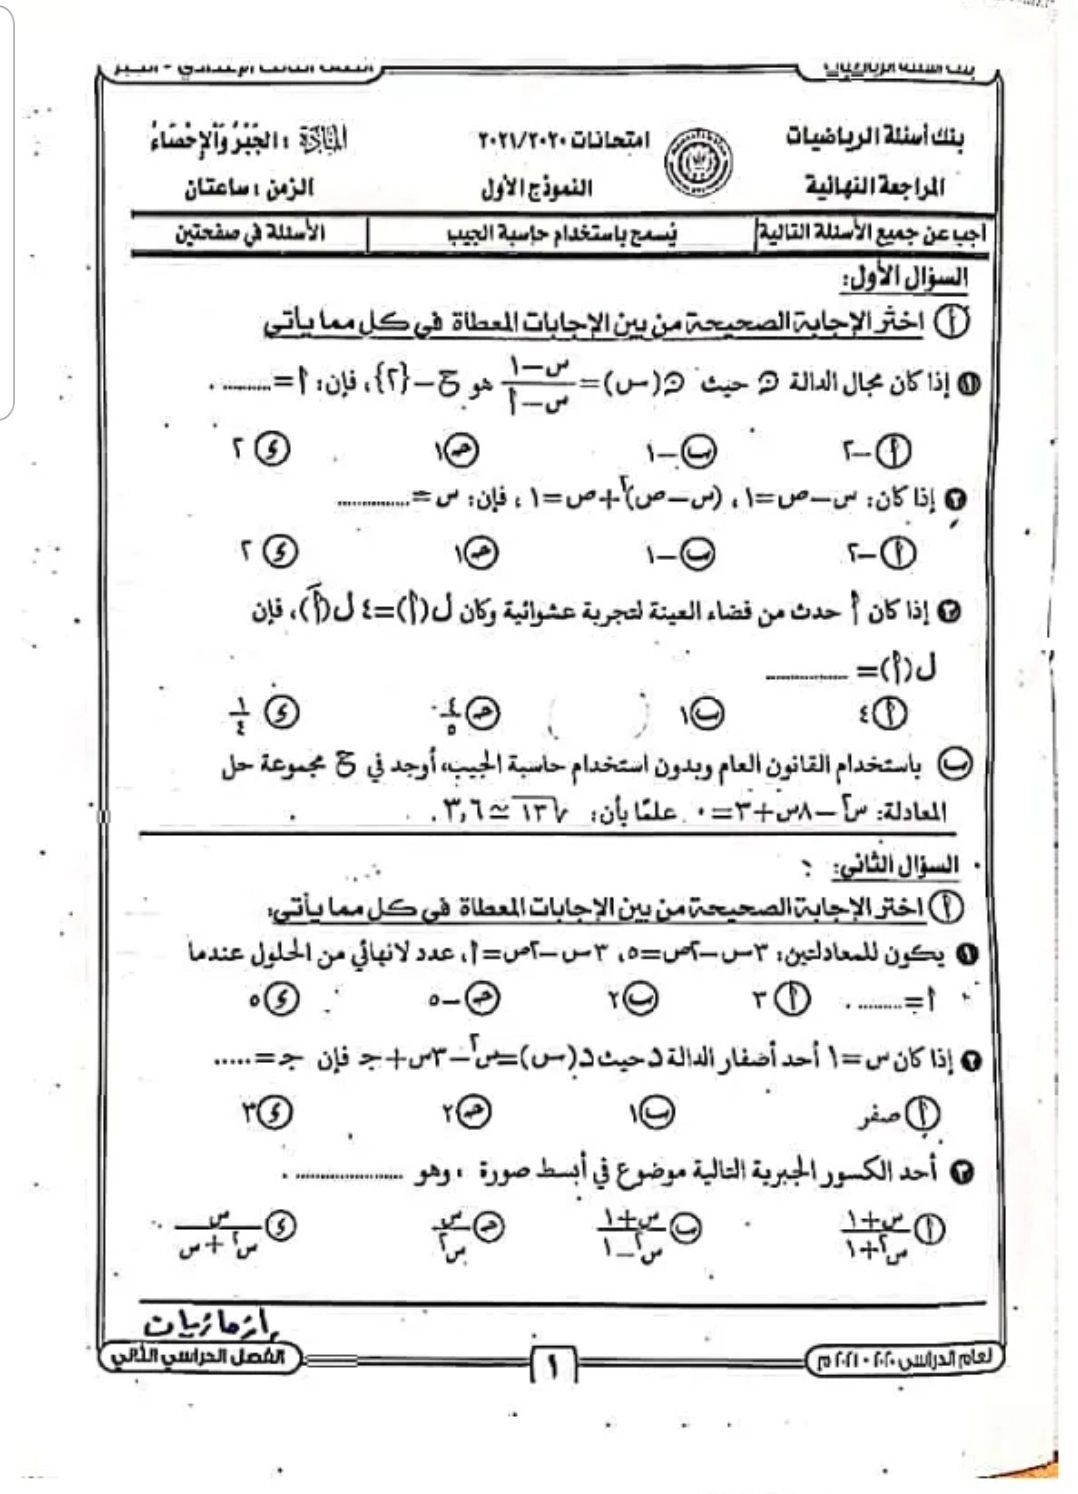 بنك أسئلة الرياضيات
امتحانات ٢٠٢١/٢٠٢٠
المادة : الجبر والإحصاء
المراجعة النهائية
النموذج الأول
الزمن : ساعتان
أجب عن جميع الأسئلة التالية | يُسمح باستخدام حاسبة الجيب | الأسئلة في صفحتين
السؤال الأول:
(أ) اختر الإجابة الصحيحة من بين الإجابات المعطاة في كل مما يأتي
١ إذا كان مجال الدالة ن حيث ن(س) = (س-١)/(س-أ) هو ح-{٢}، فإن: أ = ......... .
(أ) -٢ (ب) -١ (ج) ١ (د) ٢
٢ إذا كان: س-ص=١، (س-ص)²+ص=١، فإن: س = ..............
(أ) -٢ (ب) -١ (ج) ١ (د) ٢
٣ إذا كان أ حدث من فضاء العينة لتجربة عشوائية وكان ل(أ)=٤ل(أَ)، فإن
ل(أ) = ..............
(أ) ٤ (ب) ١ (ج) ٤/٥ (د) ١/٤
(ب) باستخدام القانون العام وبدون استخدام حاسبة الجيب، أوجد في ح مجموعة حل
المعادلة: س²-٨س+٣=٠ علمًا بأن: √١٣ ≃ ٣,٦ .
السؤال الثاني:
(أ) اختر الإجابة الصحيحة من بين الإجابات المعطاة في كل مما يأتي:
١ يكون للمعادلتين: ٣س-٢ص=٥، ٣س-٢ص=أ، عدد لانهائي من الحلول عندما
أ = ......... . (أ) ٣ (ب) ٢ (ج) -٥ (د) ٥
٢ إذا كان س=١ أحد أصفار الدالة د حيث د(س)=س²-٣س+جـ فإن جـ = .....
(أ) صفر (ب) ١ (ج) ٢ (د) ٣
٣ أحد الكسور الجبرية التالية موضوع في أبسط صورة ، وهو .................. .
(أ) (س+١)/(س²+١) (ب) (س+١)/(س²-١) (ج) س/س² (د) س/(س²+س)
لعام الدراسي ٢٠٢٠ - ٢٠٢١ م
١
الفصل الدراسي الثاني